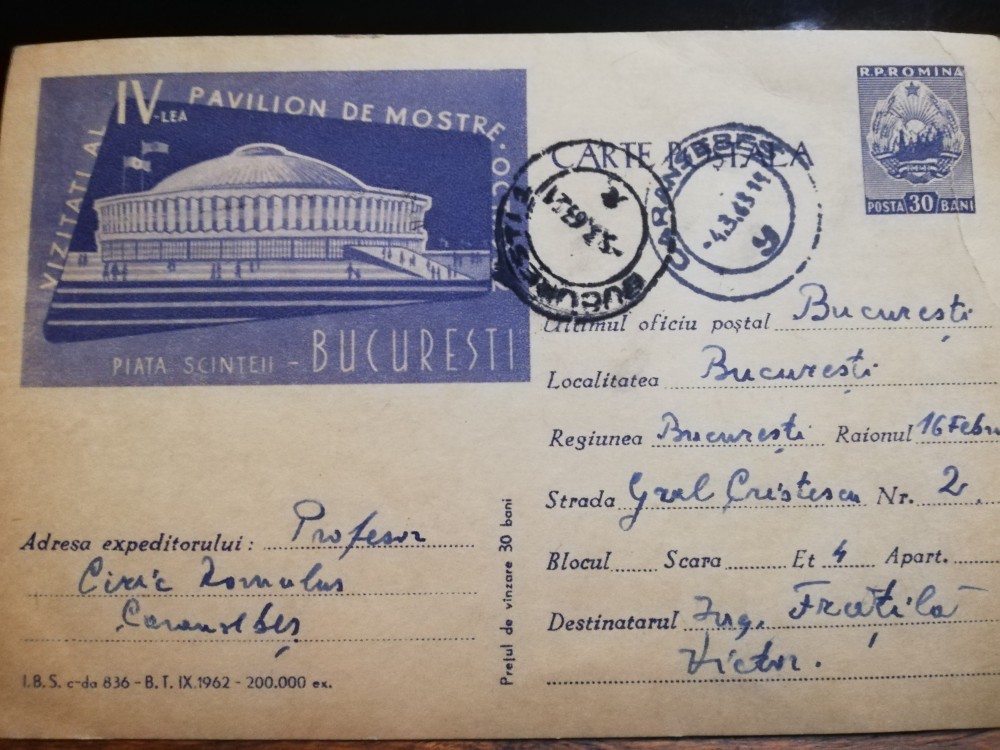 VIZITATI AL IV-LEA PAVILION DE MOSTRE
PIATA SCINTEII - BUCURESTI
R.P.ROMINA
POSTA 30 BANI
CARTE POSTALA
BUCURESTI
-5.3.63.21
CARANSEBEȘ
-4.3.63
Ultimul oficiu poștal București
Localitatea București
Regiunea București Raionul 16 Febru
Strada Gral Cristescu Nr. 2.
Blocul Scara Et 4 Apart.
Destinatarul Ing. Frățilă
Victor.
Adresa expeditorului: Profesor
Romulus
Caransebeș
Prețul de vinzare 30 bani
I.B.S. c-da 836 - B.T. IX.1962 - 200.000 ex.